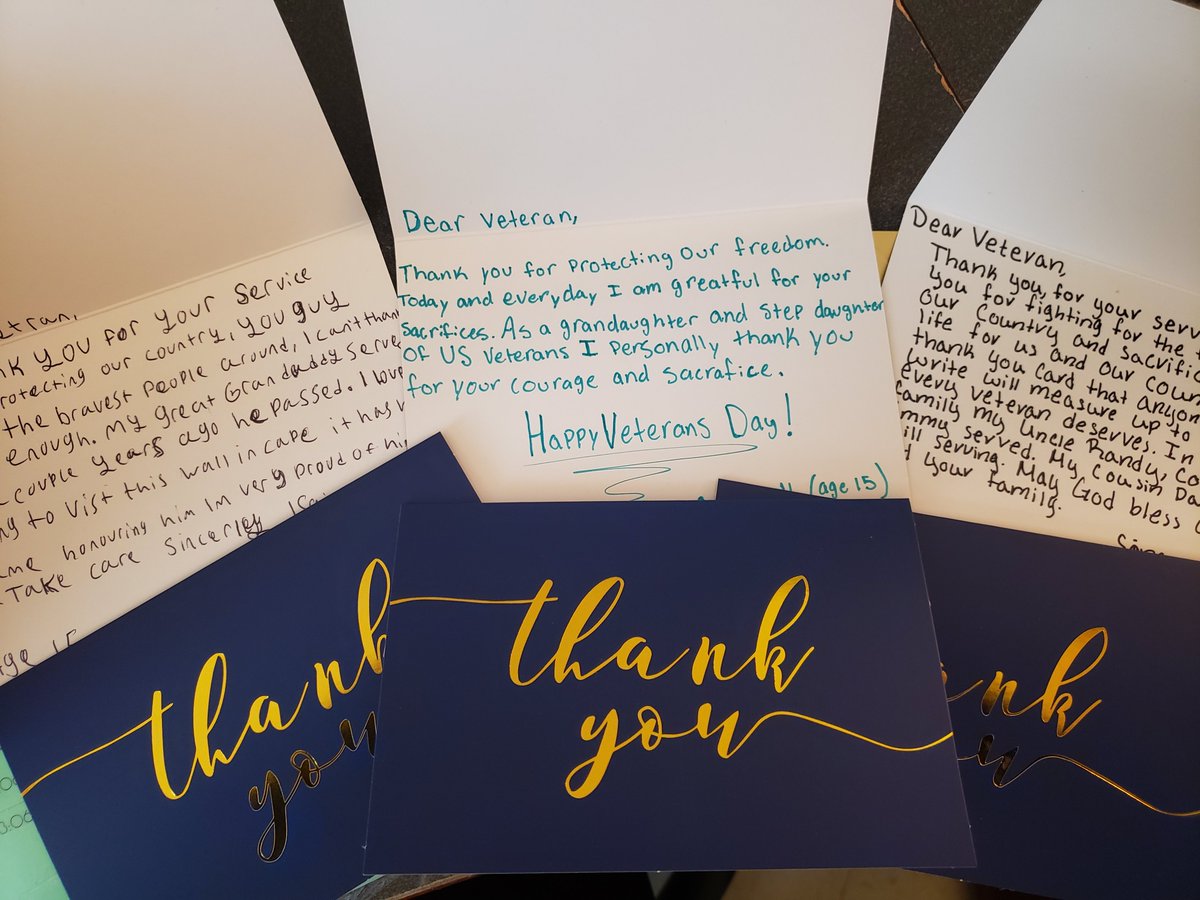 THANK YOU FOR YOUR Service
protecting our country, you guy
the bravest people around, I can't than
enough. My great Grandaddy Serve
couple years ago he passed. I love
to Visit this wall in cape it has
honouring him Im very proud of hi
Take care Sincerley
Dear Veteran,
Thank you for protecting our freedom.
Today and everyday I am greatful for your
sacrifices. As a grandaughter and step dawghter
of US Veterans I personally thank you
for your courage and sacrafice.
Happy Veterans Day!
(age 15)
Dear Veteran,
Thank you, for your serv
you for fighting for the
our Country and sacrific
life for us and our coun
thank you card that anyon
write will measure up to
every veteran deserves. In
family my Uncle Randy, Co
ommy served. My cousin Da
ill serving. May God bless
your family.
thank
you
thank
you
nk
u